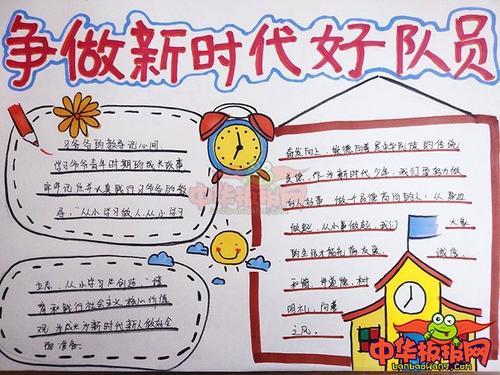 争做新时代好队员
习爷爷的教导记心间
学习爷爷青年时期的成长故事
牢牢记住并认真践行习爷爷的教
导，“从小学习做人、从小学习
立志、从小学习共创造，”培
育和践行社会主义核心价值
观，为成为新时代新人做好全
面准备。
奋发向上，崇德向善是中华民族的传统
美德，作为新时代少年，我们要努力做
好人好事，做一个品德高尚的人，从身边
做起，从小事做起，我们
大家
的生活才能充满友爱、
诚信、
和谐，讲道德、树
明礼、向善
之风。
中华板报网
中华板报网
banbaowang.com